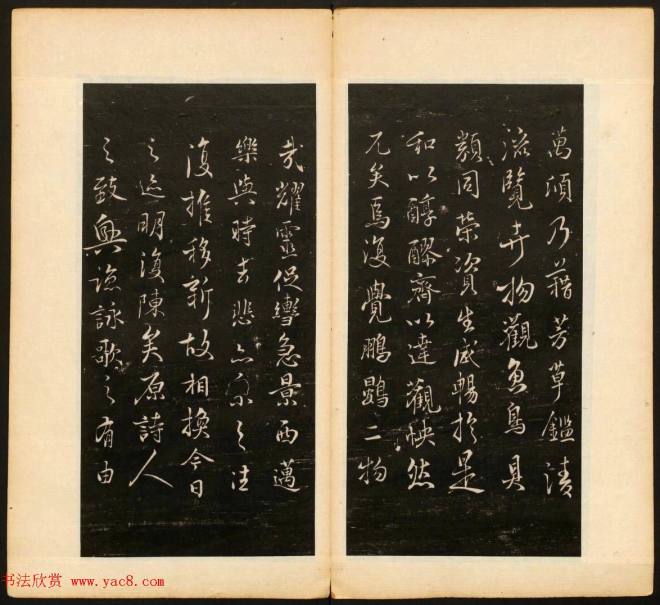 萬頃乃藉芳草鑑清
流覽卉物觀魚鳥具
類同榮資生咸暢於是
和以醇醪齊以達觀快然
兀矣焉復覺鵬鷃二物
哉耀靈促轡急景西邁
樂與時去悲亦系之往
復推移新故相換今日
之迹明復陳矣原詩人
之致興諒詠歌之有由
书法欣赏 www.yac8.com